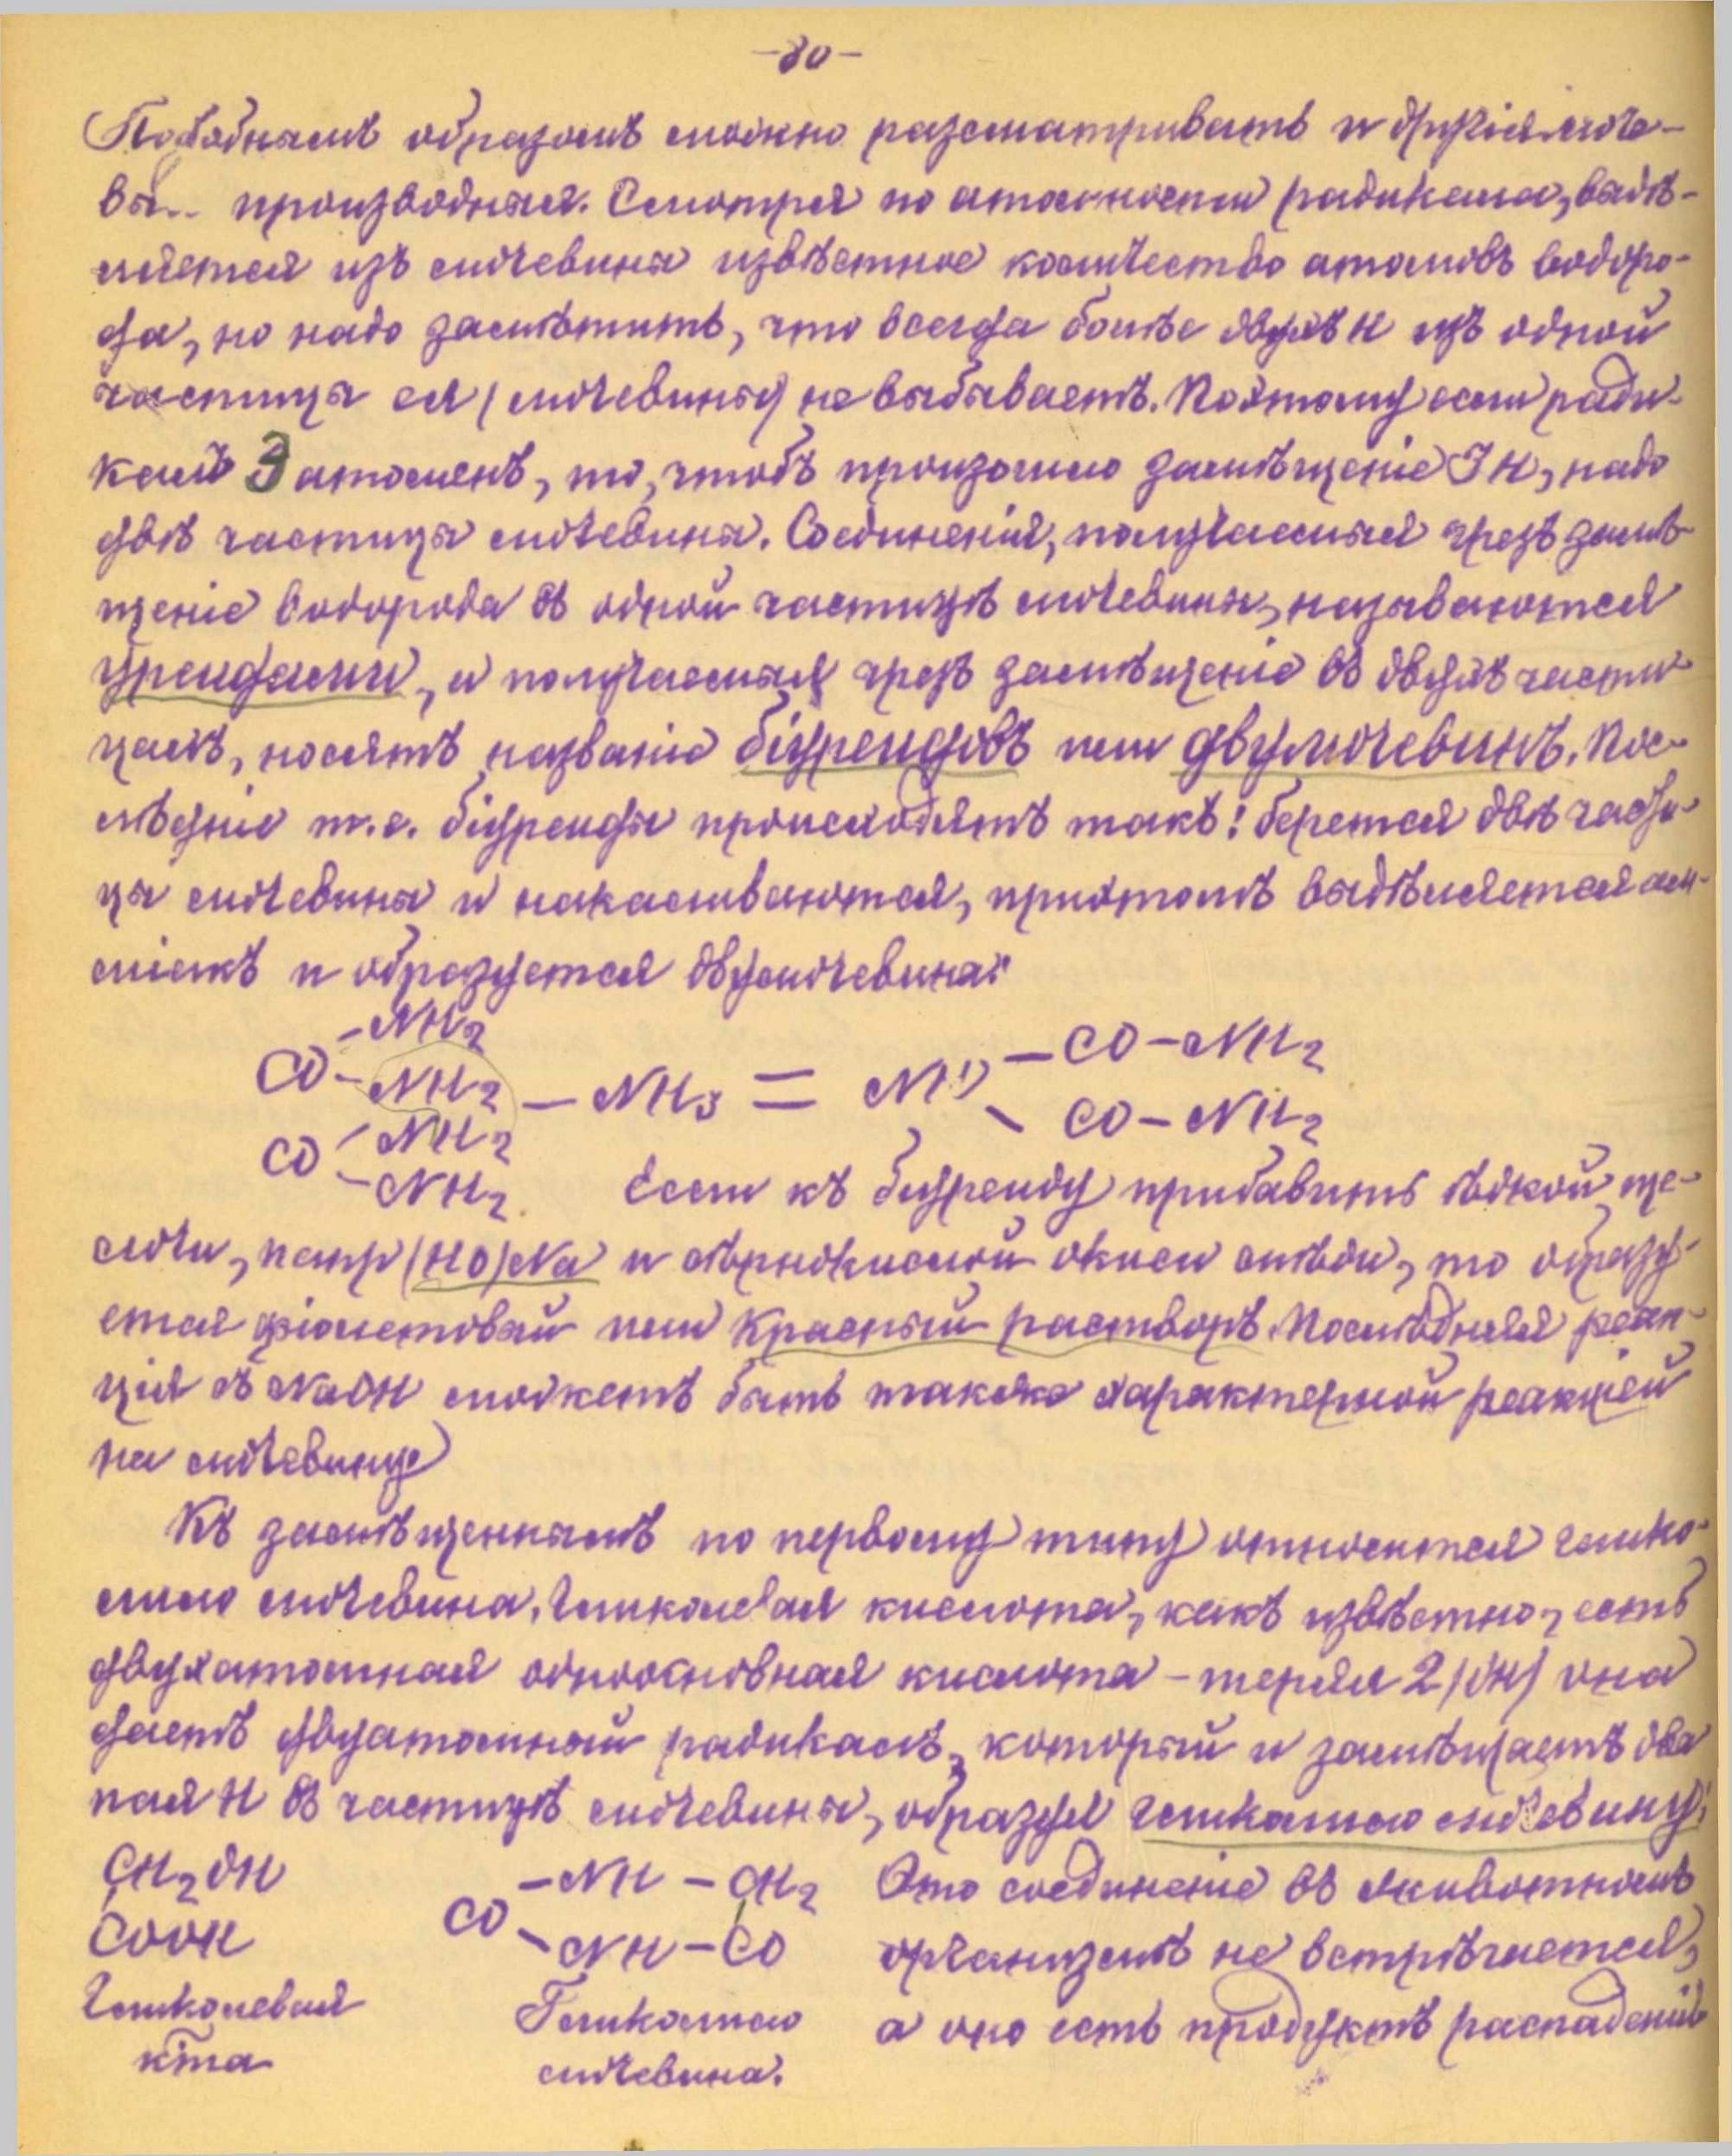 -80-
Подобнымъ образомъ можно разсматривать и другія моче-
вы.. производныя. Смотря по атомности радикала, выдѣ-
ляется изъ мочевины извѣстное количество атомовъ водоро-
да, но надо замѣтить, что всегда болѣе двухъ H изъ одной
частицы ея (мочевины) не выбываетъ. Поэтому если ради-
калъ 3 атоменъ, то, чтобъ произошло замѣщеніе 3H, надо
двѣ частицы мочевины. Соединенія, получаемыя чрезъ замѣ-
щеніе водорода въ одной частицѣ мочевины, называются
уреидами, и получаемыя чрезъ замѣщеніе въ двухъ части
цахъ, носятъ названіе біуреидовъ или двумочевинъ. Пос-
лѣднія т.е. біуреиды происходятъ такъ: берется двѣ части-
цы мочевины и накаливаются, приэтомъ выдѣляется ам-
міакъ и образуется двумочевина:
-NH2
CO-NH2 — NH3 = NH'' —CO—NH2
CO -NH2 \ CO—NH2
-NH2 Если къ биуреиду прибавить ѣдкой ще-
лочи, напр (HO)Na и сѣрнокислой окиси мѣди, то образу-
ется фіолетовый или красный растворъ. Послѣдняя реак-
ція съ NaOH можетъ быть также характерной реакціей
на мочевину
Къ замѣщеннымъ по первому типу относится глико-
лило мочевина. Гликолевая кислота, какъ извѣстно, есть
двухатомная одноосновная кислота - теряя 2(OH) она
даетъ двуатомный радикалъ, который и замѣщаетъ два
пая H въ частицѣ мочевины, образуя гликолило мочевину:
CH2OH CO -NH - CH2 Это соединеніе въ животномъ
COOH -NH - CO организмѣ не встрѣчается,
Гликолевая Гликолило а оно есть продуктъ распаденія
кта мочевина.